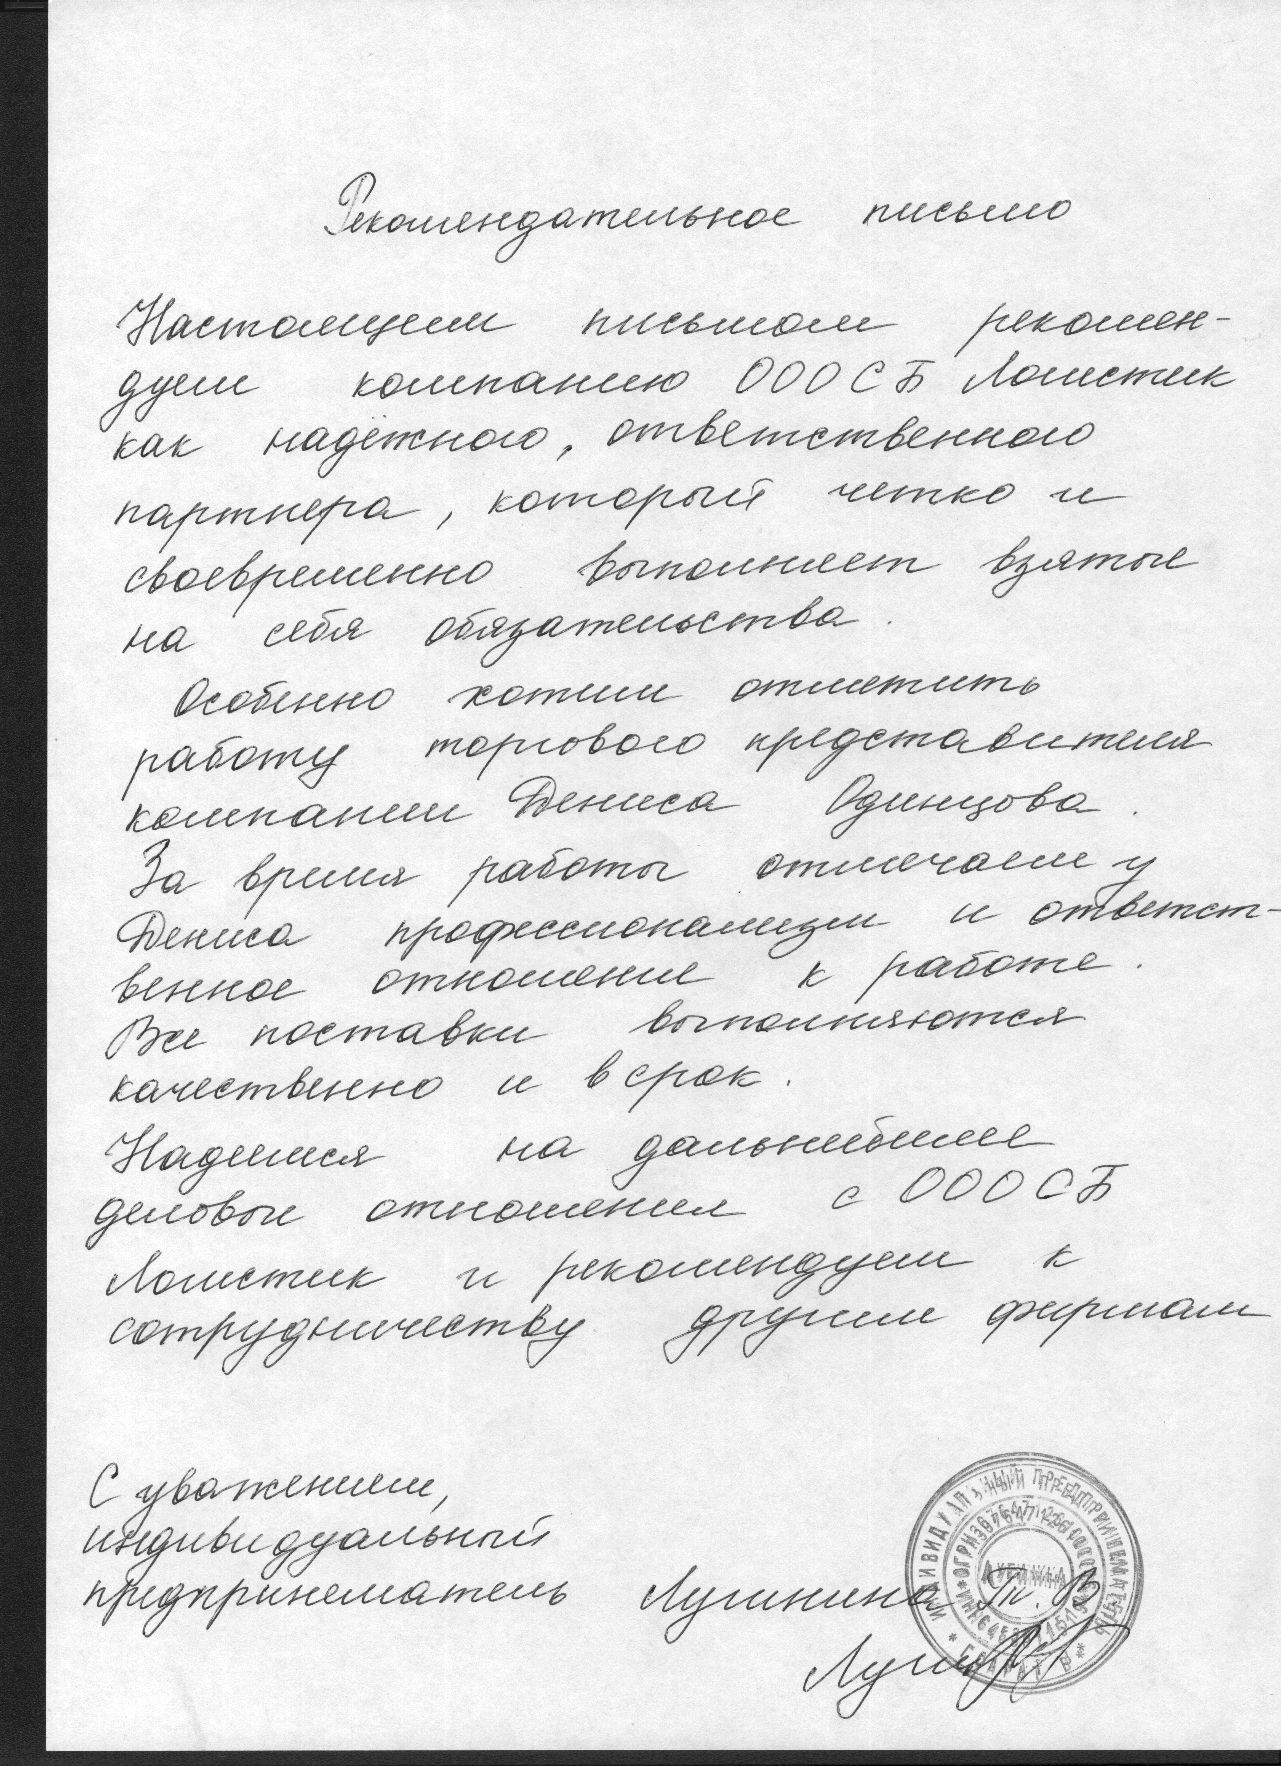 Рекомендательное письмо
Настоящим письмом рекомен-
дуем компанию ООО СБ Логистик
как надёжного, ответственного
партнера, который четко и
своевременно выполняет взятые
на себя обязательства.
Особенно хотим отметить
работу торгового представителя
компании Дениса Одинцова.
За время работы отмечаем у
Дениса профессионализм и ответст-
венное отношение к работе.
Все поставки выполняются
качественно и в срок.
Надеемся на дальнейшие
деловые отношения с ООО СБ
Логистик и рекомендуем к
сотрудничеству другим фирмам
С уважением,
индивидуальный
предприниматель Лугинина Т. В
ИНДИВИДУАЛЬНЫЙ ПРЕДПРИНИМАТЕЛЬ